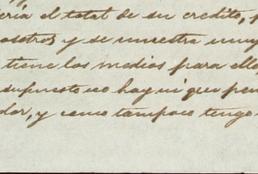 ería el total de su credito, p
osotros y se muestra muy
tiene los medios para ello,
supuesto no hay ni que pen
dor, y como tampoco tengo